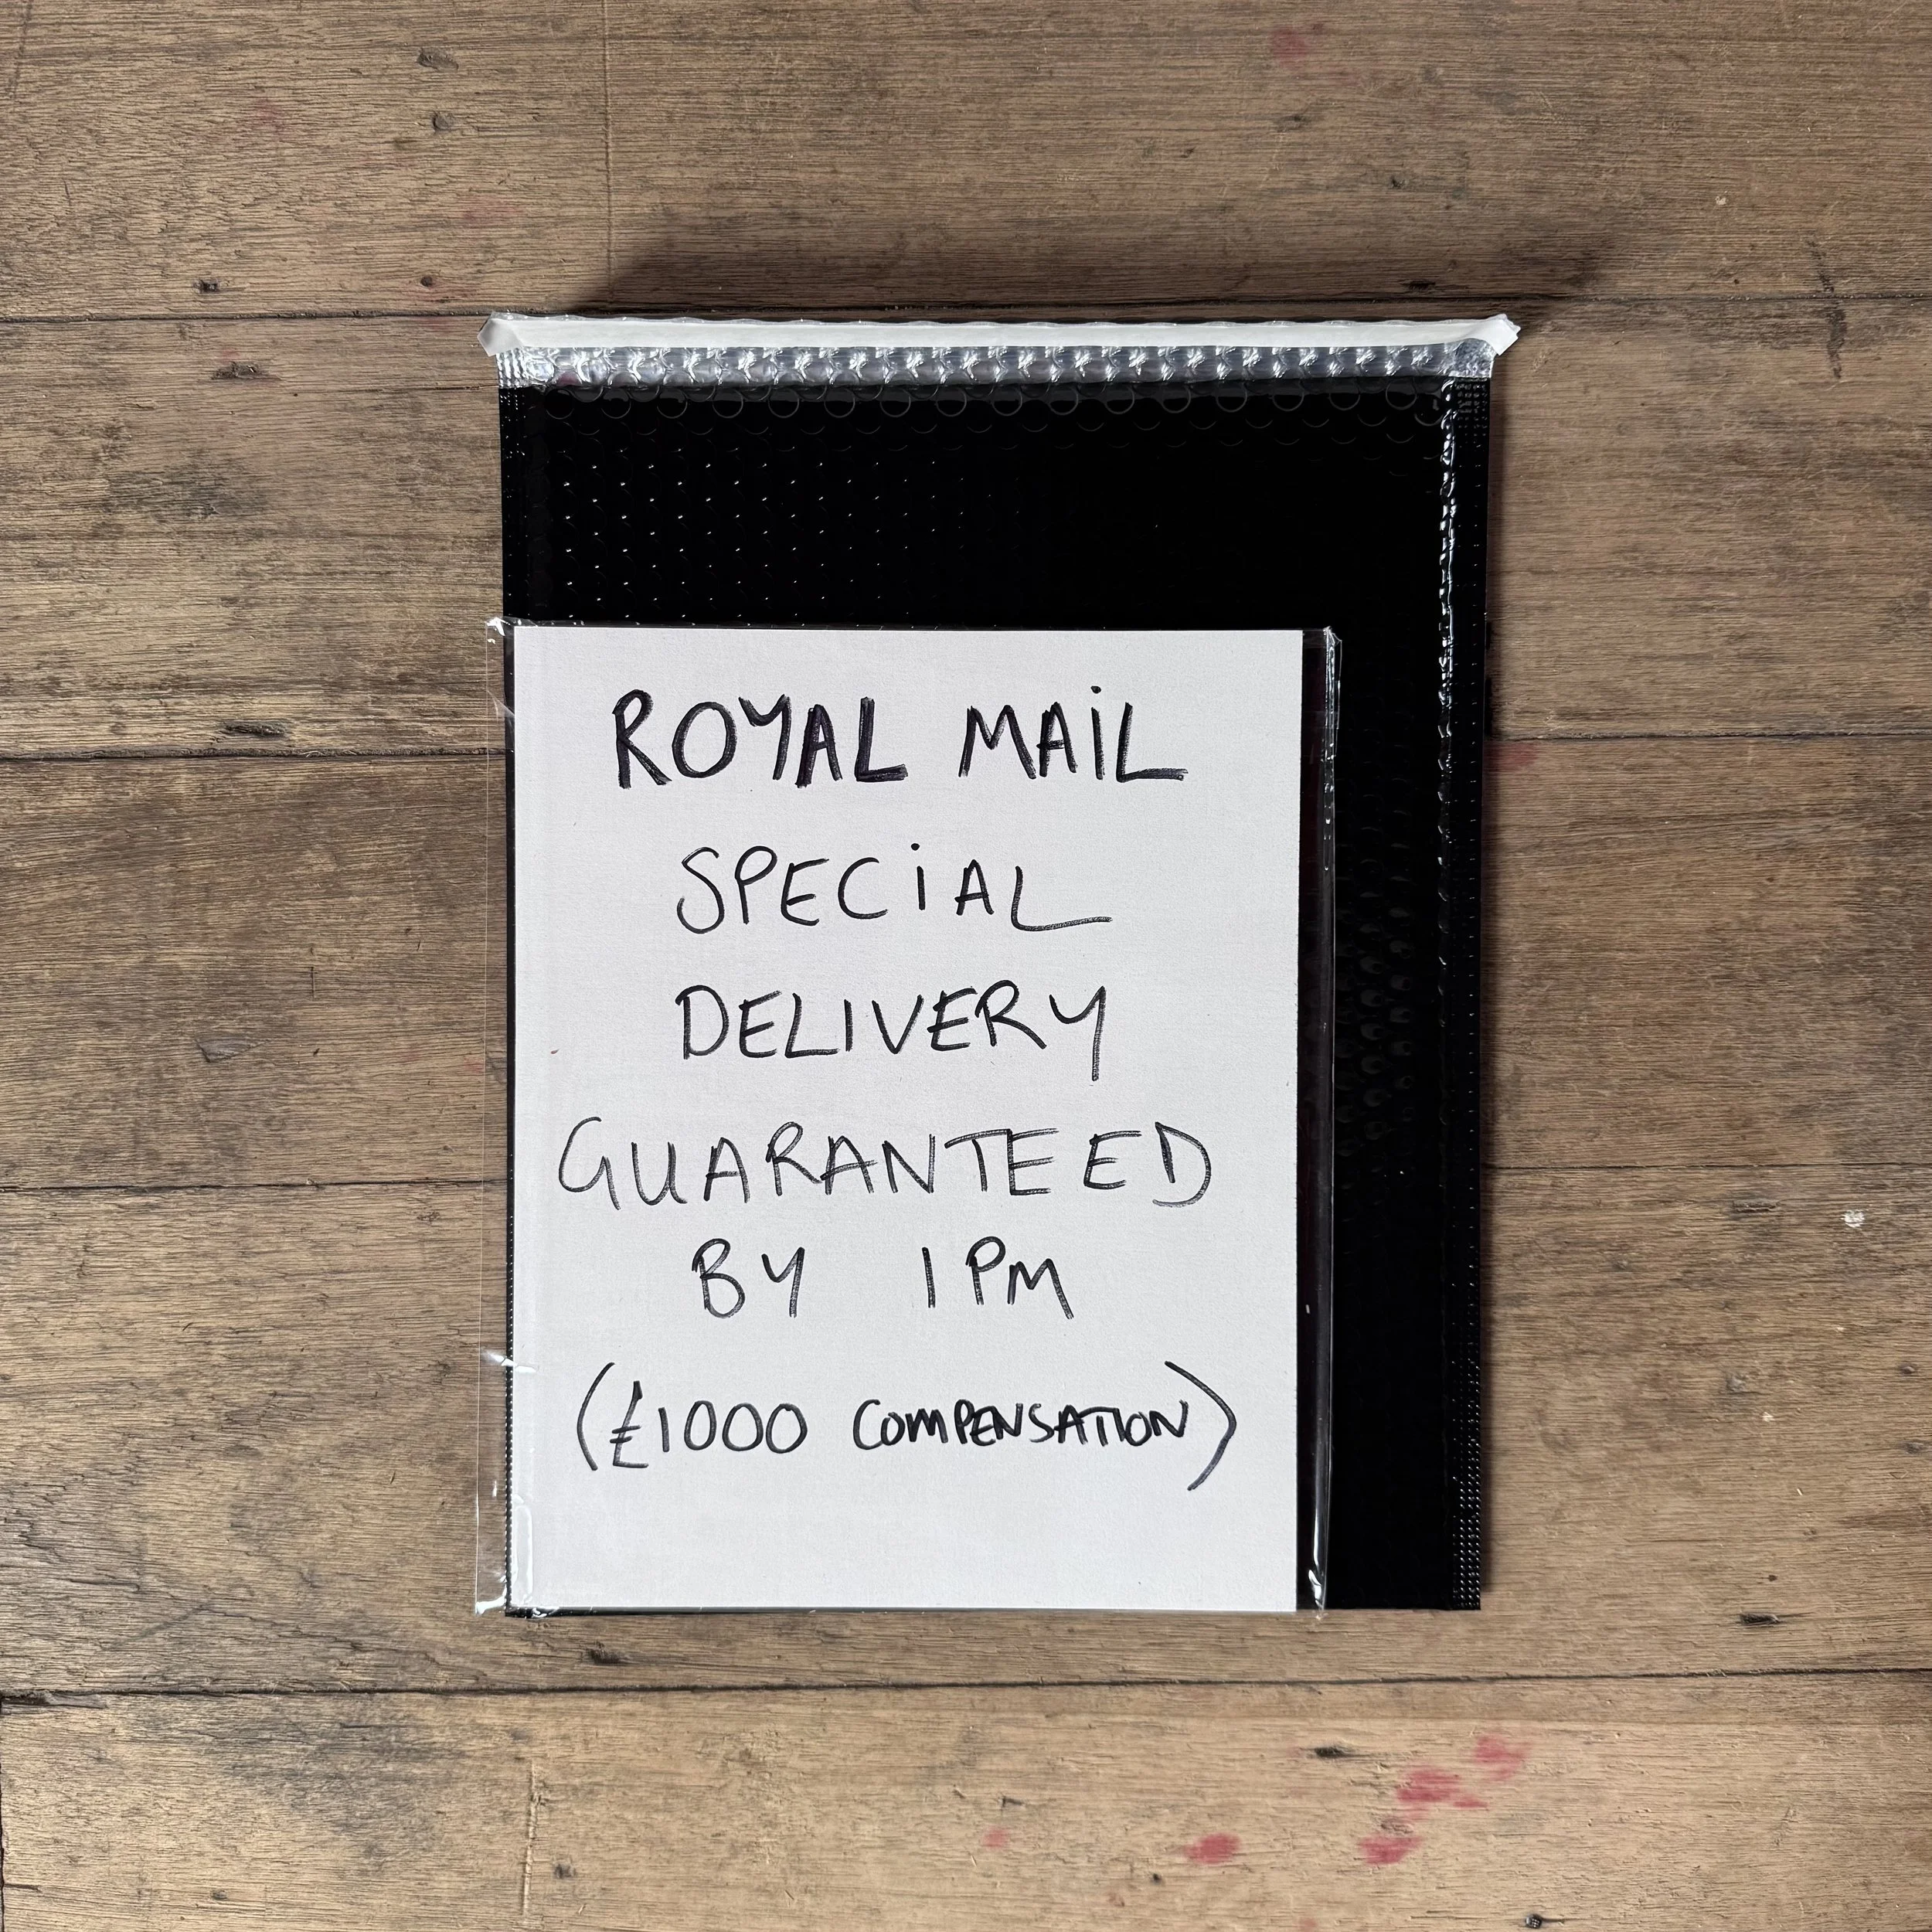 ROYAL MAIL
SPECIAL
DELIVERY
GUARANTEED
BY 1PM
(£1000 COMPENSATION)